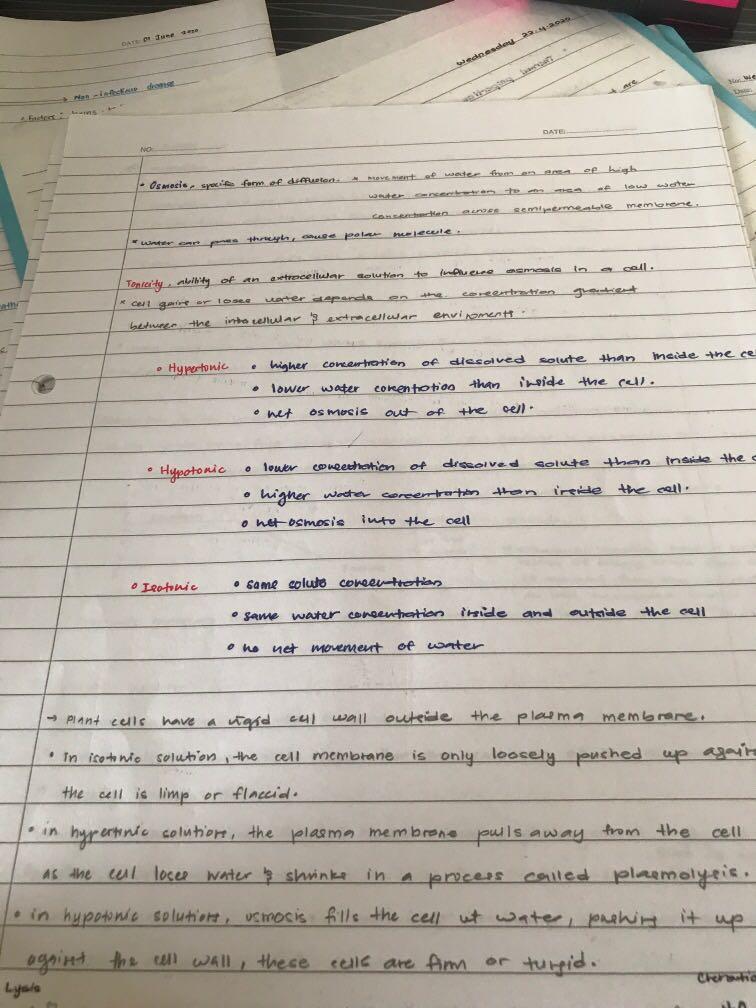 DATE: 01 June 2020
Wednesday 22.4.2020
→ Non-infectious disease
• Factors:
are
No: We
Date:
NO:
DATE:
• Osmosis, specific form of diffusion. * movement of water from an area of high
water concentration to an area of low water
concentration across semipermeable membrane.
* water can pass through, cause polar molecule.
Tonicity, ability of an extracellular solution to influence osmosis in a cell.
* cell gains or loses water depends on the concentration gradient
between the intracellular & extracellular enviroments.
• Hypertonic • higher concentration of dissolved solute than inside the ce
• lower water concentration than inside the cell.
• net osmosis out of the cell.
• Hypotonic • lower concentration of dissolved solute than inside the c
• higher water concentration than inside the cell.
• net osmosis into the cell
• Isotonic • same solute concentration
• same water concentration inside and outside the cell
• no net movement of water
→ Plant cells have a rigid cell wall outside the plasma membrane.
• in isotonic solution, the cell membrane is only loosely pushed up again
the cell is limp or flaccid.
• in hypertonic solutions, the plasma membrane pulls away from the cell
as the cell loses water & shrinks in a process called plasmolysis.
• in hypotonic solutions, osmosis fills the cell w/ water, pushing it up
against the cell wall, these cells are firm or turgid.
Lysis